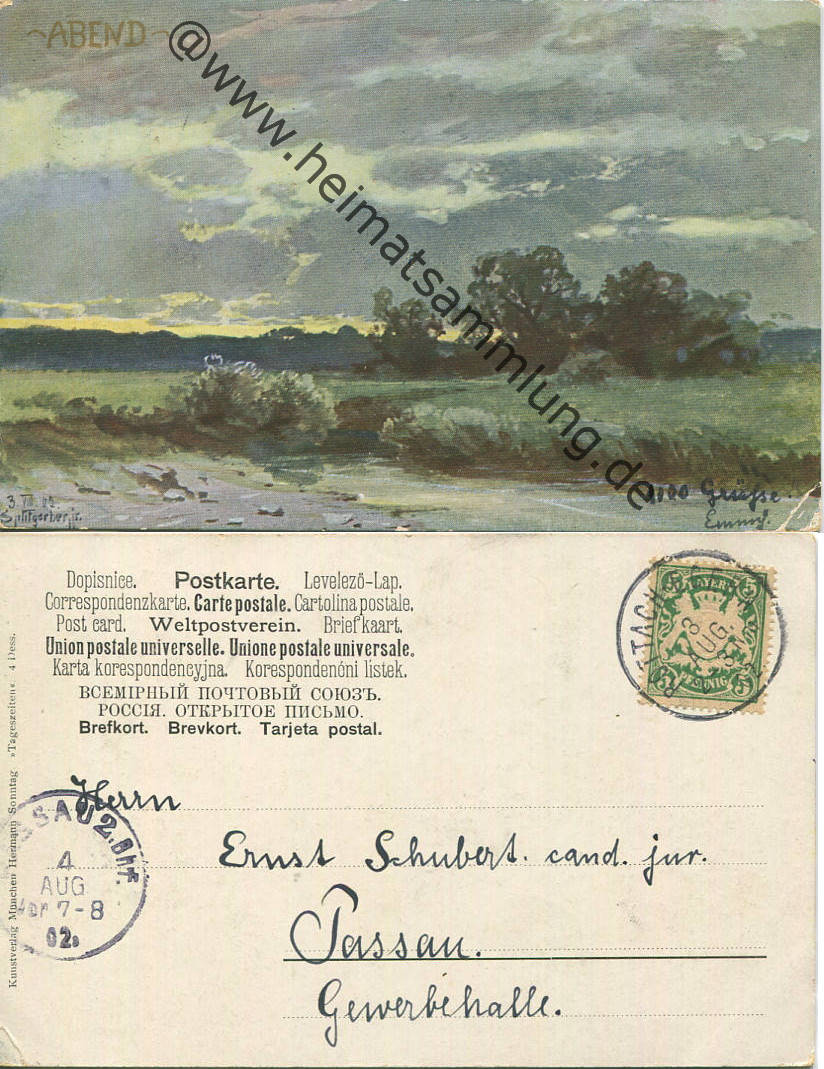 ~ABEND~
@www.heimatsammlung.de
3. VIII. 02.
Splitgerber jr.
1000 Grüsse.
Emmy.
Dopisnice. Postkarte. Levelezö-Lap.
Correspondenzkarte. Carte postale. Cartolina postale.
Post card. Weltpostverein. Briefkaart.
Union postale universelle. Unione postale universale.
Karta korespondencyjna. Korespondenóni listek.
ВСЕМІРНЫЙ ПОЧТОВЫЙ СОЮЗЪ.
РОССІЯ. ОТКРЫТОЕ ПИСЬМО.
Brefkort. Brevkort. Tarjeta postal.
5 BAYERN 5
5 PFENNIG 5
3
AUG.
Herrn
Ernst Schubert. cand. jur.
Passau.
Gewerbehalle.
SSAU 2. Bhf.
4
AUG
Vor 7-8
02.
Kunstverlag München Hermann Sonntag »Tageszeiten« 4 Dess.